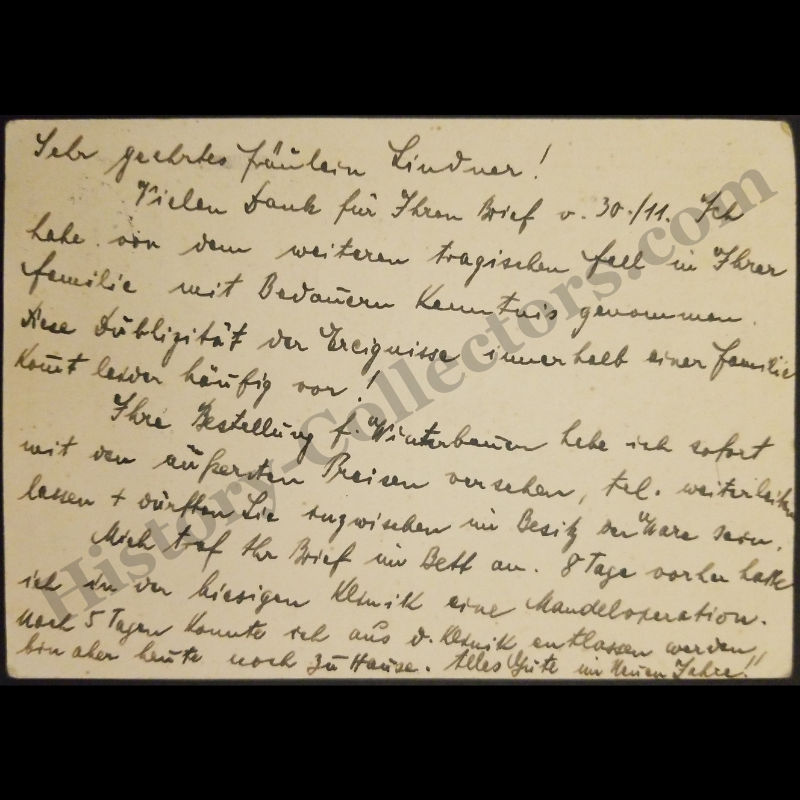 Sehr geehrtes Fräulein Lindner!
Vielen Dank für Ihren Brief v. 30./11. Ich
habe von dem weiteren tragischen Fall in Ihrer
Familie mit Bedauern Kenntnis genommen.
Diese Dublizität der Ereignisse innerhalb einer Familie
kommt leider häufig vor!
Ihre Bestellung f. Winterbauen habe ich sofort
mit den äußersten Preisen versehen, tel. weiterleiten
lassen + dürften Sie inzwischen im Besitz der Ware sein.
Mich traf Ihr Brief im Bett an. 8 Tage vorher hatte
ich in der hiesigen Klinik eine Mandeloperation.
Nach 5 Tagen konnte ich aus d. Klinik entlassen werden,
bin aber heute noch zu Hause. Alles Gute im Neuen Jahre!
History-Collectors.com